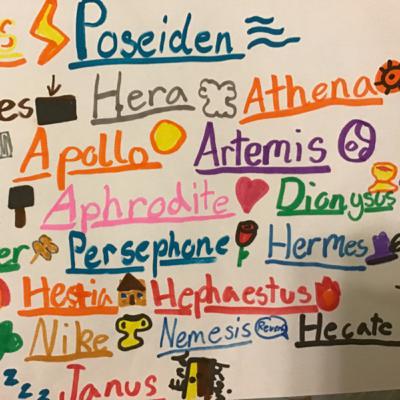 s Poseiden
es Hera Athena
Apollo Artemis
Aphrodite Dionysus
er Persephone Hermes
Hestia Hephaestus
Nike Nemesis Hecate
z z z z Janus